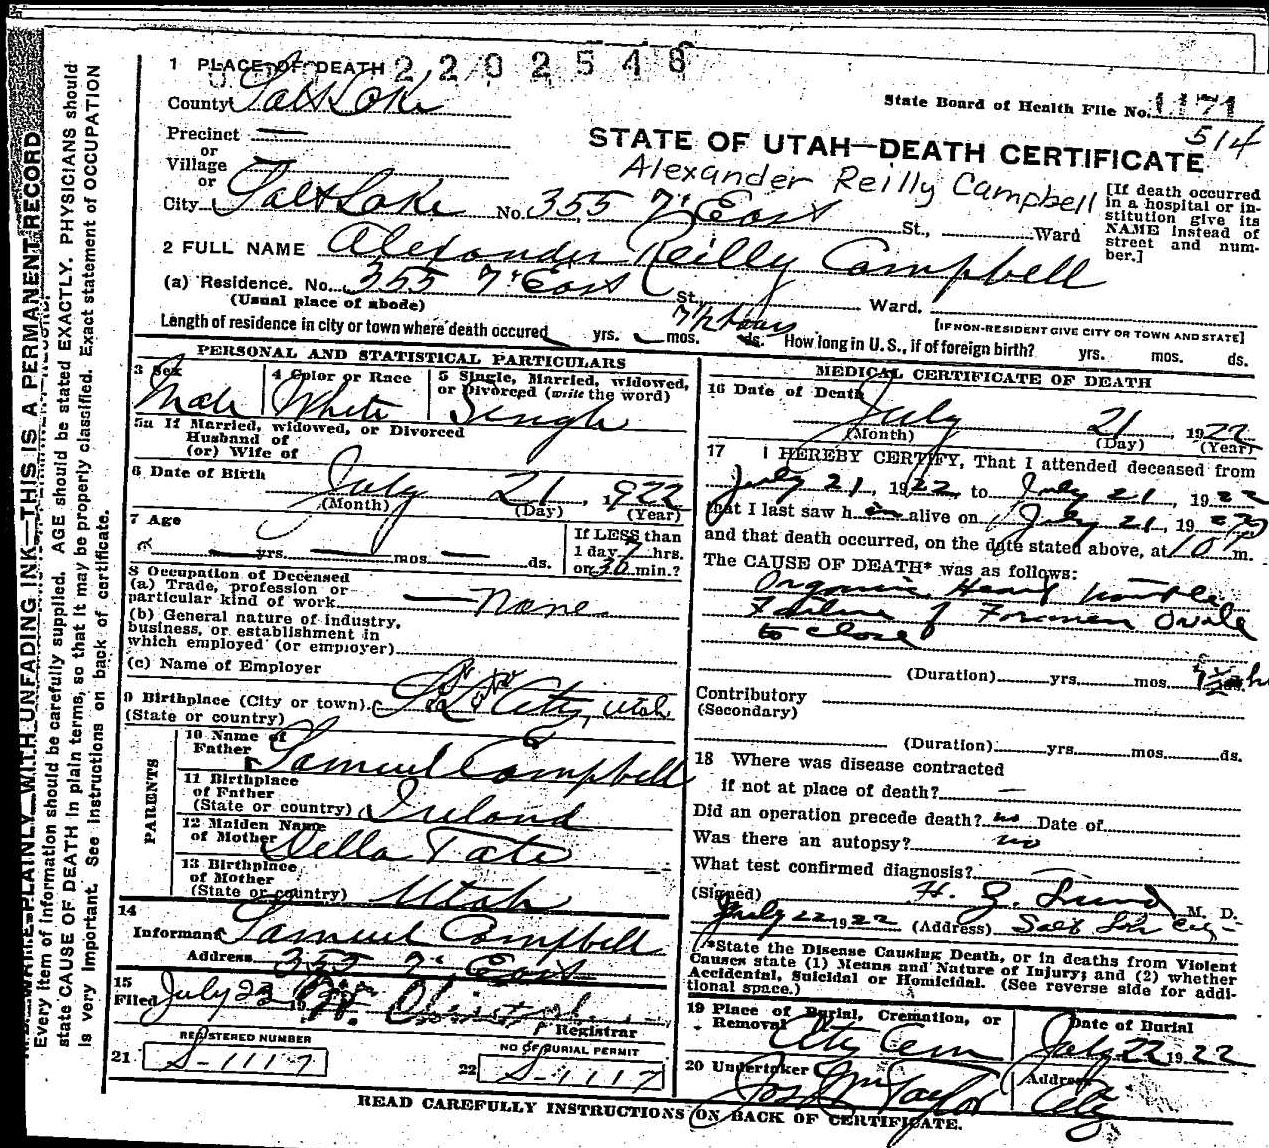 2202548
1 PLACE OF DEATH
County Salt Lake
State Board of Health File No. 1171
514
Precinct —
or
Village
or
STATE OF UTAH—DEATH CERTIFICATE
Alexander Reilly Campbell
City Salt Lake No. 355 7" East St., Ward
[If death occurred in a hospital or institution give its NAME instead of street and number.]
2 FULL NAME Alexander Reilly Campbell
(a) Residence. No. 355 7" East St. Ward.
(Usual place of abode)
[IF NON-RESIDENT GIVE CITY OR TOWN AND STATE]
Length of residence in city or town where death occured yrs. mos. 7 1/2 hours ds. How long in U. S., if of foreign birth? yrs. mos. ds.
PERSONAL AND STATISTICAL PARTICULARS
3 Sex
Male
4 Color or Race
White
5 Single, Married, widowed, or Divorced (write the word)
Single
5a If Married, widowed, or Divorced
Husband of
(or) Wife of
6 Date of Birth
July 21, 1922
(Month) (Day) (Year)
7 Age
— yrs. — mos — ds.
If LESS than
1 day 7 hrs.
or 30 min.?
8 Occupation of Deceased
(a) Trade, profession or
particular kind of work — none
(b) General nature of industry,
business, or establishment in
which employed (or employer)
(c) Name of Employer
9 Birthplace (City or town) S. L. City, Utah
(State or country)
PARENTS
10 Name of
Father Samuel Campbell
11 Birthplace
of Father
(State or country) Ireland
12 Maiden Name
of Mother Della Tate
13 Birthplace
of Mother
(State or country) Utah
14
Informant Samuel Campbell
Address 355 7" East
15
Filed July 23 19
Registrar
REGISTERED NUMBER
21 S-1117
NO OF BURIAL PERMIT
22 S-1117
MEDICAL CERTIFICATE OF DEATH
16 Date of Death
July 21, 1922
(Month) (Day) (Year)
17 I HEREBY CERTIFY, That I attended deceased from
July 21, 1922, to July 21, 1922
that I last saw h im alive on July 21, 1922
and that death occurred, on the date stated above, at 10 P m.
The CAUSE OF DEATH* was as follows:
Organic Heart trouble
Failure of Foramen Ovale
to close
(Duration) yrs. mos. ds.
Contributory
(Secondary)
(Duration) yrs. mos. ds.
18 Where was disease contracted
if not at place of death? —
Did an operation precede death? no Date of
Was there an autopsy? no
What test confirmed diagnosis? —
(Signed) H. Z. Lund M. D.
July 22 1922 (Address) Salt Lake City
(*State the Disease Causing Death, or in deaths from Violent
Causes state (1) Means and Nature of Injury; and (2) whether
Accidental, Suicidal or Homicidal. (See reverse side for addi-
tional space.)
19 Place of Burial, Cremation, or
Removal City Cem
Date of Burial
July 22 1922
20 Undertaker
Jos Wm Taylor
Address
City
READ CAREFULLY INSTRUCTIONS ON BACK OF CERTIFICATE.
WRITE PLAINLY WITH UNFADING INK—THIS IS A PERMANENT RECORD
Every item of information should be carefully supplied. AGE should be stated EXACTLY. PHYSICIANS should
state CAUSE OF DEATH in plain terms, so that it may be properly classified. Exact statement of OCCUPATION
is very important. See instructions on back of certificate.